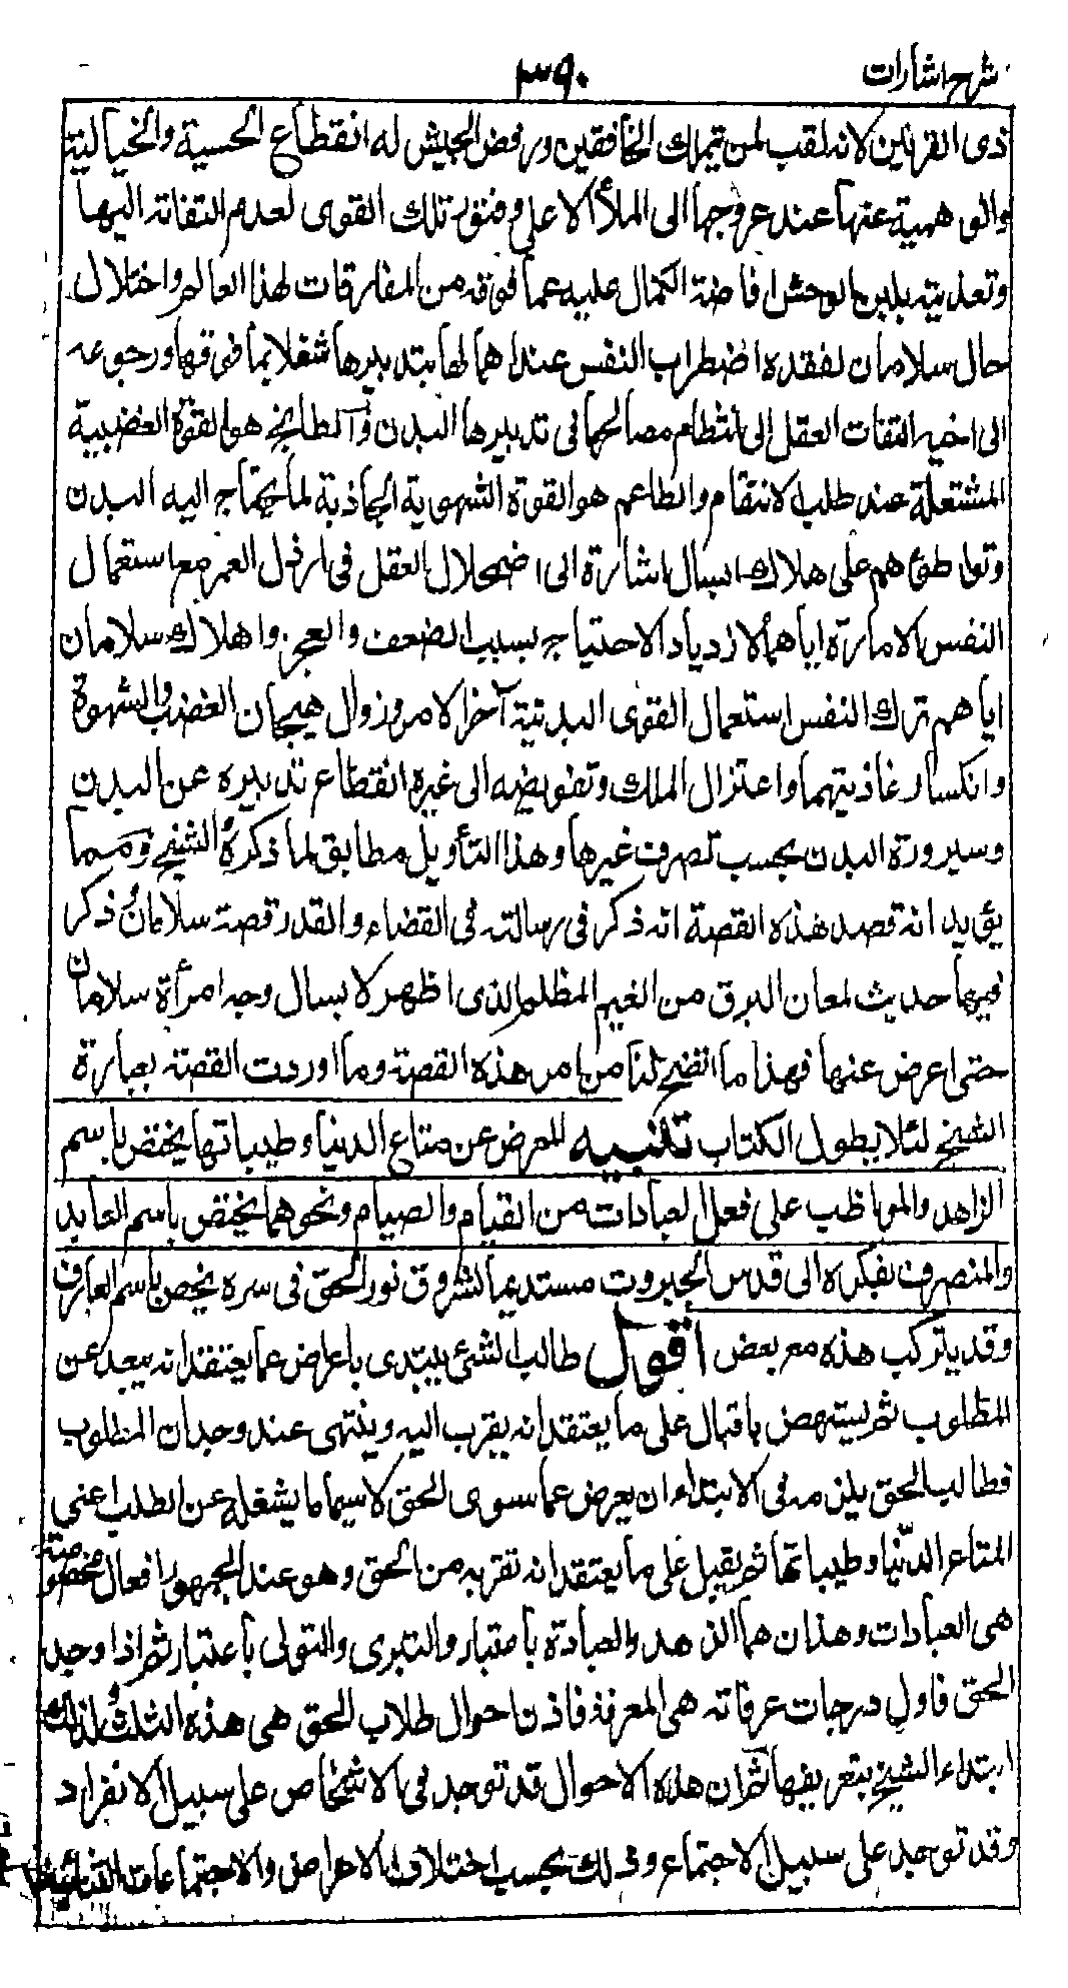 شرح اشارات
٣٩٠
ذى القرنين لانه لقب لمن تملك الخافقين ورفض الجيش له انقطاع الحسية والخيالية
والوهمية عنها عند عروجها الى الملأ الاعلى وفتور تلك القوى لعدم التفاته اليها
وتغذيته بلبن الوحش افاضة الكمال عليه عما فوقه من المفارقات لهذا العالم واختلال
حال سلامان لفقده اضطراب النفس عند اهمالها بتدبيرها شغلا بما فوقها ورجوعه
الى اخيه التفات العقل الى انتظام مصالحها فى تدبيرها البدن والطابخ هو القوة الغضبية
المشتعلة عند طلب الانتقام والطاعم هو القوة الشهوية الجاذبة لما يحتاج اليه البدن
وتواطئهم على هلاك ابسال اشارة الى اضمحلال العقل فى ارذل العمر مع استعمال
النفس الامارة اياهما لازدياد الاحتياج بسبب الضعف والعجز واهلاك سلامان
اياهم ترك النفس استعمال القوى البدنية آخر الامر وزوال هيجان الغضب والشهوة
وانكسار غاذيتهما واعتزال الملك وتفويضه الى غيره انقطاع تدبيره عن البدن
وسيرورة البدن بحسب تصرف غيرها وهذا التأويل مطابق لما ذكره الشيخ ومما
يؤيد انه قصد هذه القصة انه ذكر فى رسالته فى القضاء والقدر قصة سلامان وذكر
فيها حديث لمعان البرق من الغيم المظلم الذى اظهر لابسال وجه امرأة سلامان
حتى اعرض عنها فهذا ما اتضح لنا من امر هذه القصة وما اوردت القصة بعبارة
الشيخ لئلا يطول الكتاب تنبيه المعرض عن متاع الدنيا وطيباتها يختص باسم
الزاهد والمواظب على فعل العبادات من القيام والصيام ونحوهما يختص باسم العابد
والمنصرف بفكره الى قدس الجبروت مستديما لشروق نور الحق فى سره يختص باسم العارف
وقد يتركب هذه مع بعض اقول طالب الشئ يبتدى باعراض عما يعتقد انه يبعد عن
المطلوب ثم يستنهض باقبال على ما يعتقد انه يقرب اليه وينتهى عند وجدان المطلوب
فطالب الحق يلزمه فى الابتداء ان يعرض عما سوى الحق لا سيما ما يشغله عن الطلب اعنى
المتاع الدنيا وطيباتها ثم يقبل على ما يعتقد انه تقربه من الحق وهو عند الجمهور افعال مخصوصة
هى العبادات وهذان هما الزهد والعبادة باعتبار والتبرى والتولى باعتبار ثم اذا وجد
الحق فاول درجات عرفانه هى المعرفة فاذن احوال طلاب الحق هى هذه الثلث لذلك
ابتداء الشيخ بتعريفها ثم ان هذه الاحوال قد توجد فى الاشخاص على سبيل الانفراد
وقد توجد على سبيل الاجتماع وذلك بحسب اختلاف الاعراض والاجتماعات